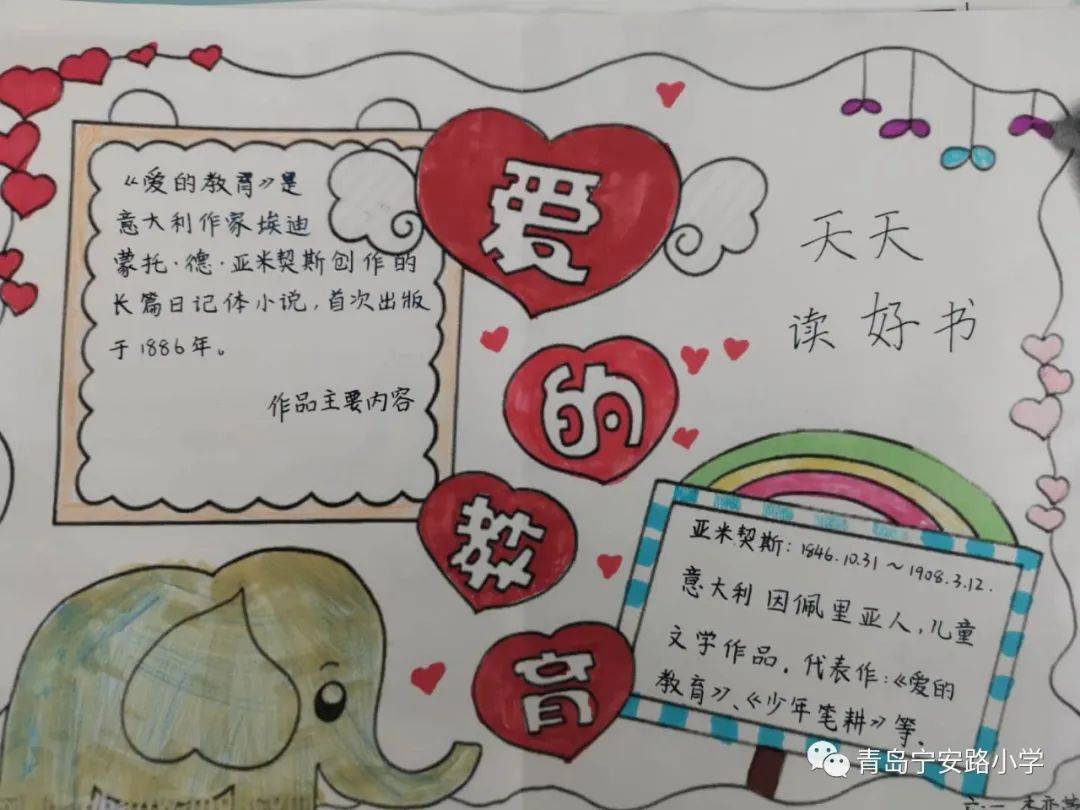 《爱的教育》是
意大利作家埃迪
蒙托·德·亚米契斯创作的
长篇日记体小说,首次出版
于1886年。
作品主要内容
爱
的
教
育
天天
读好书
亚米契斯:1846.10.31~1908.3.12.
意大利因佩里亚人,儿童
文学作品。代表作:《爱的
教育》、《少年笔耕》等、
青岛宁安路小学